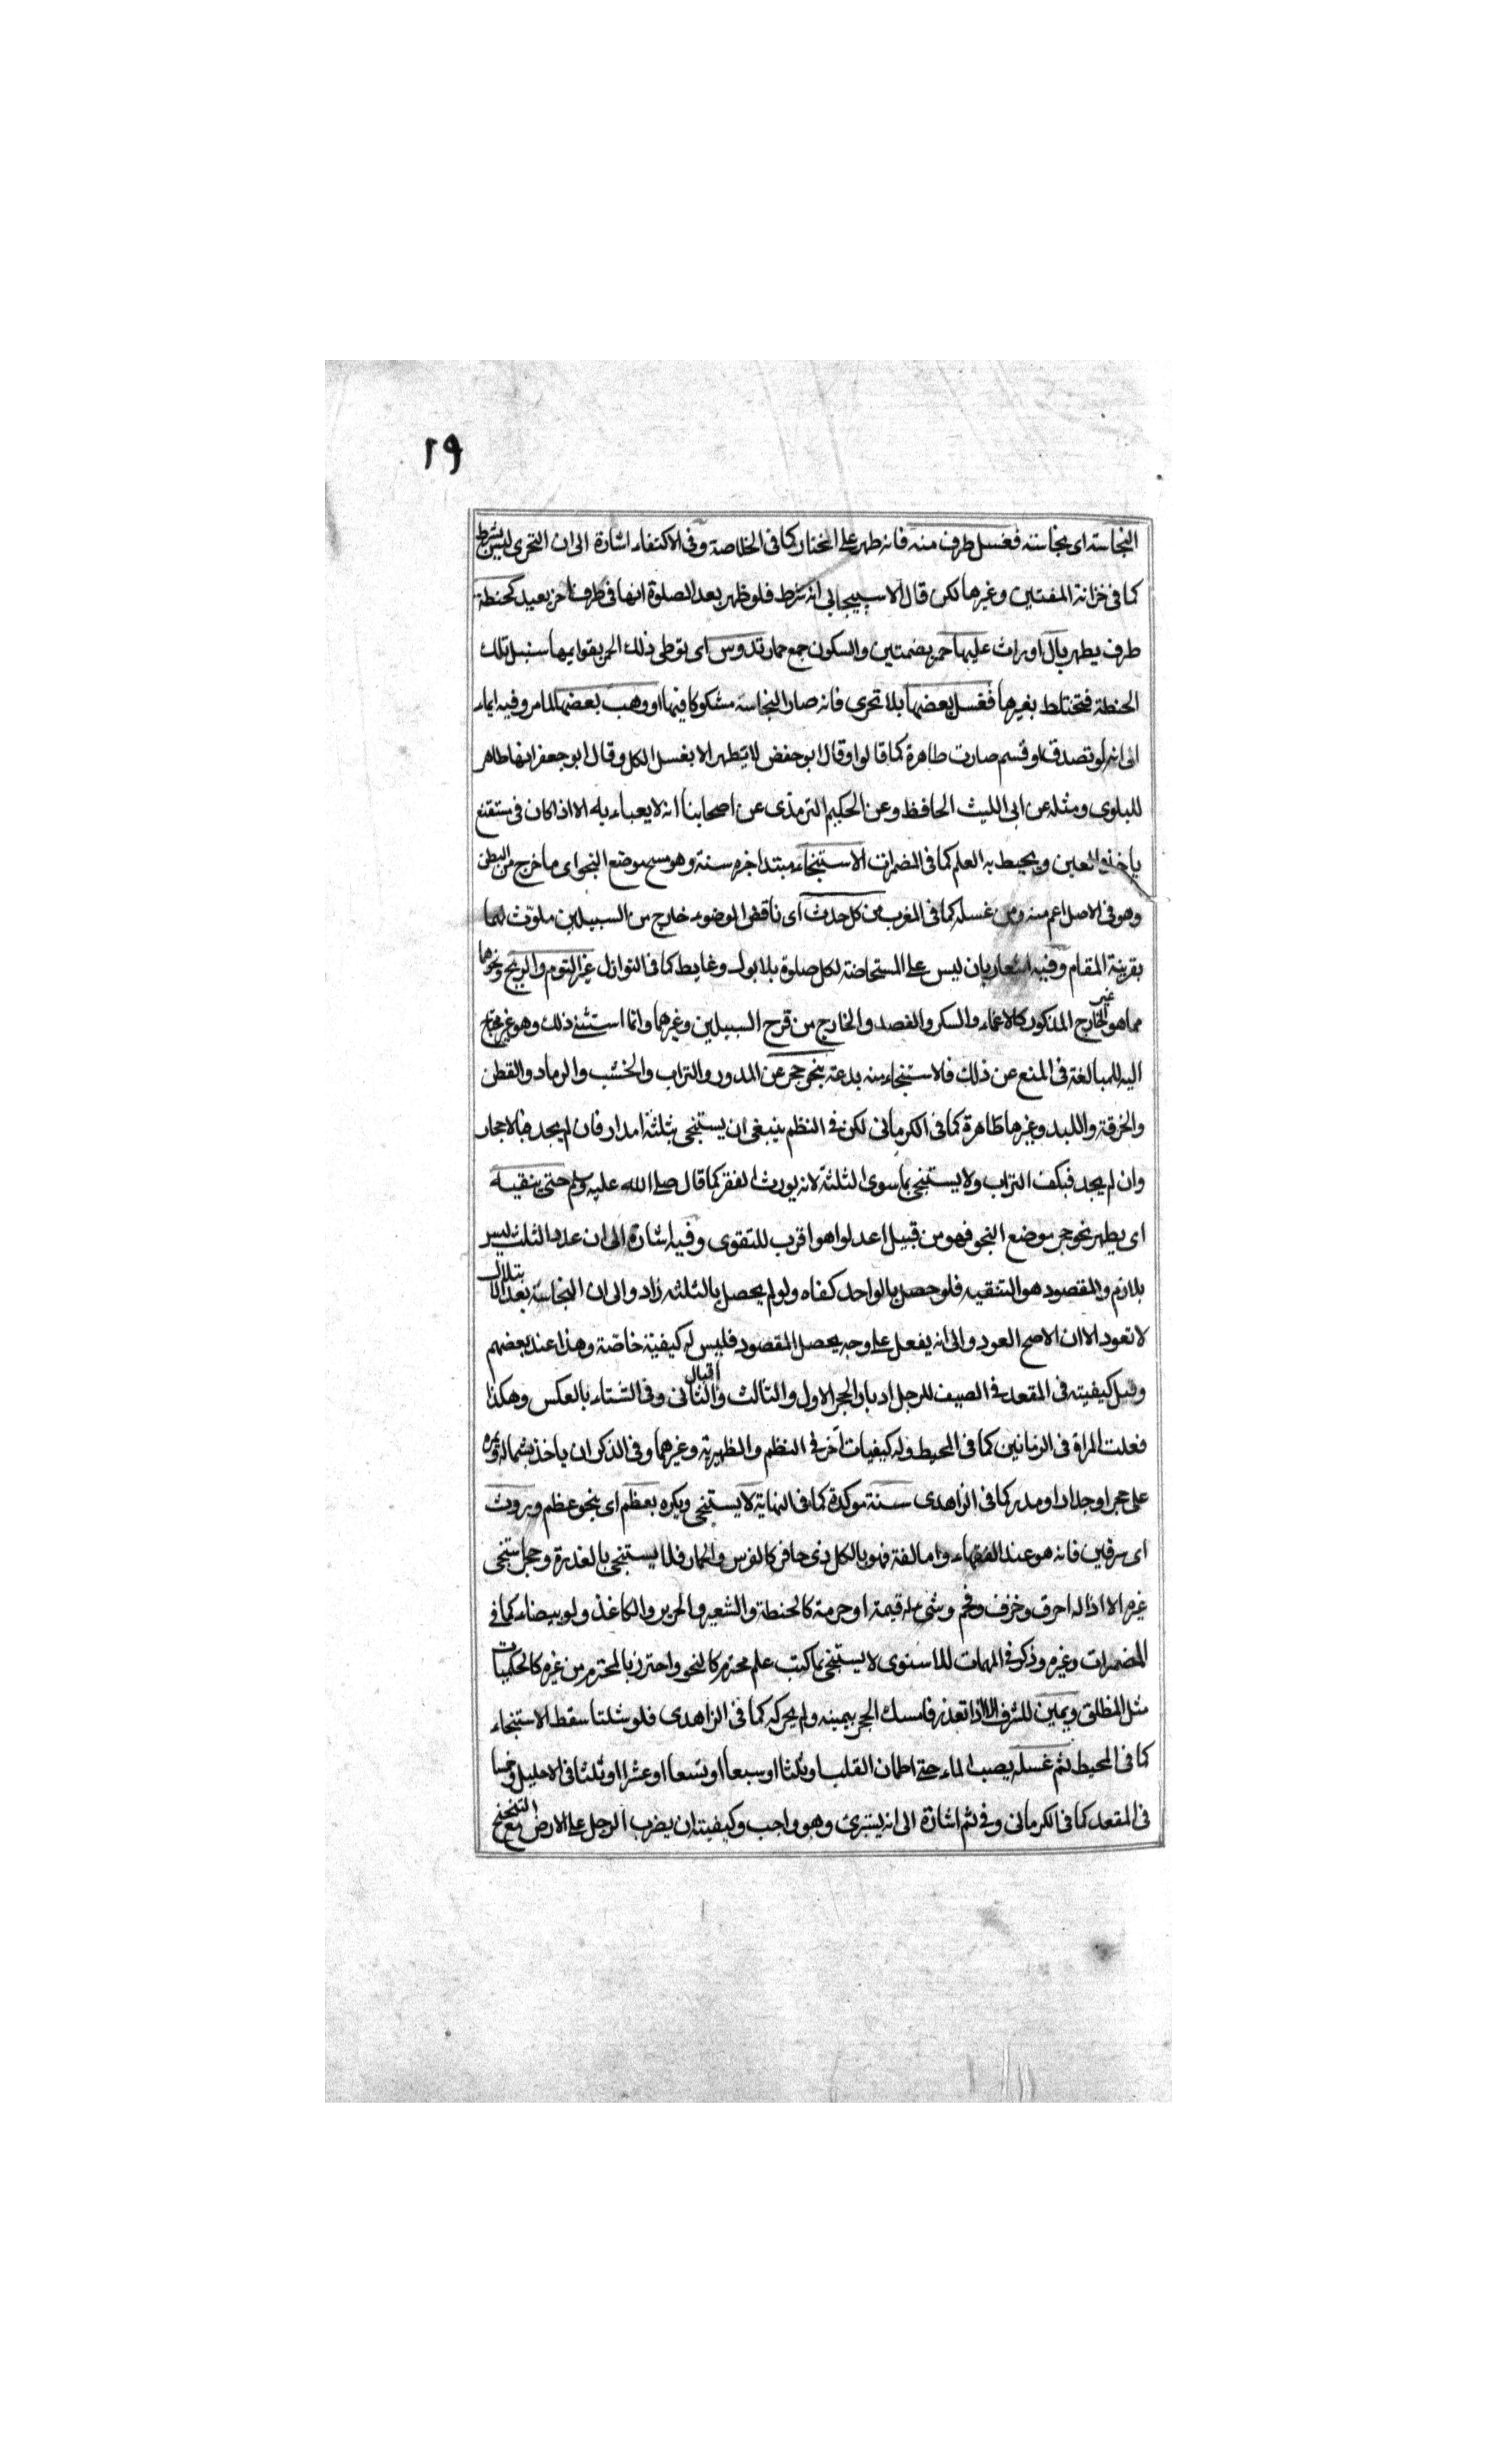 ١٩
النجاسة اى بنجاسته فغسل طرف منه فانه طهر على المختار كما فى الخلاصة وفى الاكتفاء اشارة الى ان التحرى ليس بشرط
كما فى خزانة المفتين وغيرها لكن قال الاسبيجابى انه شرط فلو ظهر بعد الصلوة انها فى طرف اخر يعيد كحنطة
طرف يطهر بال او راث عليها حمر بضمتين والسكون جمع حمار تدوس اى توطى ذلك الحمر بقوايمها سنبل تلك
الحنطة فتختلط بغيرها فغسل بعضها بلا تحرى فانه صار النجاسة مشكوكا فيها او وهب بعضها لما مر وفيه ايماء
الى انه لو تصدق او قسم صارت طاهرة كما قالوا وقال ابو حفص لا يطهر الا بغسل الكل وقال ابو جعفر انها طاهر
للبلوى ومثله عن ابى الليث الحافظ وعن الحكيم الترمذى عن اصحابنا انه لا يعباء به الا اذا كان فى مستنقع
ياخذه العين ويحيط به العلم كما فى المضمرات الاستنجاء مبتدا خبره سنة وهو مسح موضع النجو اى ما خرج من البطن
وهو فى الاصل اعم منه ومن غسله كما فى المغرب من كل حدث اى ناقض الوضوء خارج من السبيلين ملوث لهما
بقرينة المقام وفيه اشعار بان ليس على المستحاضة لكل صلوة بلا بول وغايط كما فى النوازل غير النوم والريح ونحوهما
مما هو غير الخارج المذكور كالاغماء والسكر والفصد والخارج من قرح السبيلين وغيرهما وانما استثنى ذلك وهو غير محتاج
اليه للمبالغة فى المنع عن ذلك فالاستنجاء منه بدعة بنحو حجر عن المدر والتراب والخشب والرماد والقطن
والخرقة واللبد وغيرها طاهرة كما فى الكرمانى لكن فى النظم ينبغى ان يستنجى بثلثة امدار فان لم يجد فبالاحجار
وان لم يجد فبكف التراب ولا يستنجى بما سوى الثلثة لانه يورث الفقر كما قال صلى الله عليه وسلم حتى ينقيه
اى يطهر نحو حجر موضع النجو فهو من قبيل اعدلوا هو اقرب للتقوى وفيه اشارة الى ان عدد الثلث ليس
بلازم والمقصود هو التنقية فلو حصل بالواحد كفاه ولو لم يحصل بالثلثة زاد والى ان النجاسة بعد الابتلال
لا تعود الا ان الاصح العود والى انه يفعل على وجه يحصل المقصود فليس له كيفية خاصة وهذا عند بعضهم
وقيل كيفيته فى المقعد فى الصيف للرجل ادبار الحجر الاول والثالث واقبال الثانى وفى الشتاء بالعكس وهكذا
فعلت المراة فى الزمانين كما فى المحيط وله كيفيات اخر فى النظم والظهيرية وغيرهما وفى الذكر ان ياخذ بشماله ويمره
على حجر او جدار او مدر كما فى الزاهدى سنة موكدة كما فى النهاية لا يستنجى ويكره بعظم اى بنحو عظم وبروث
اى سرقين فانه هو عند الفقهاء واما لغة فهو بالكل ذى حافر كالفرس والحمار فلا يستنجى بالعذرة وحجر استنجى
غيره الا اذا له احرق وخزف وفحم وشئ له قيمة او حرمة كالحنطة والشعير والحرير والكاغذ ولو بيضاء كما فى
المضمرات وغيره وذكر فى المهمات للاسنوى لا يستنجى بما كتب علم محترم كالنحو واحترز بالمحترم من غيره كالحكميات
مثل المنطق ويمين للشرف الا اذا تعذر فامسك الحجر بيمينه ولم يحركه كما فى الزاهدى فلو شلتا سقط الاستنجاء
كما فى المحيط ثم غسله يصب الماء حتى اطمان القلب او ثلثا او سبعا او تسعا او عشرا او ثلثا فى الاحليل وخمسا
فى المقعد كما فى الكرمانى وفى ثم اشارة الى انه يستبرئ وهو واجب وكيفيته ان يضرب الرجل على الارض مع التنحنح